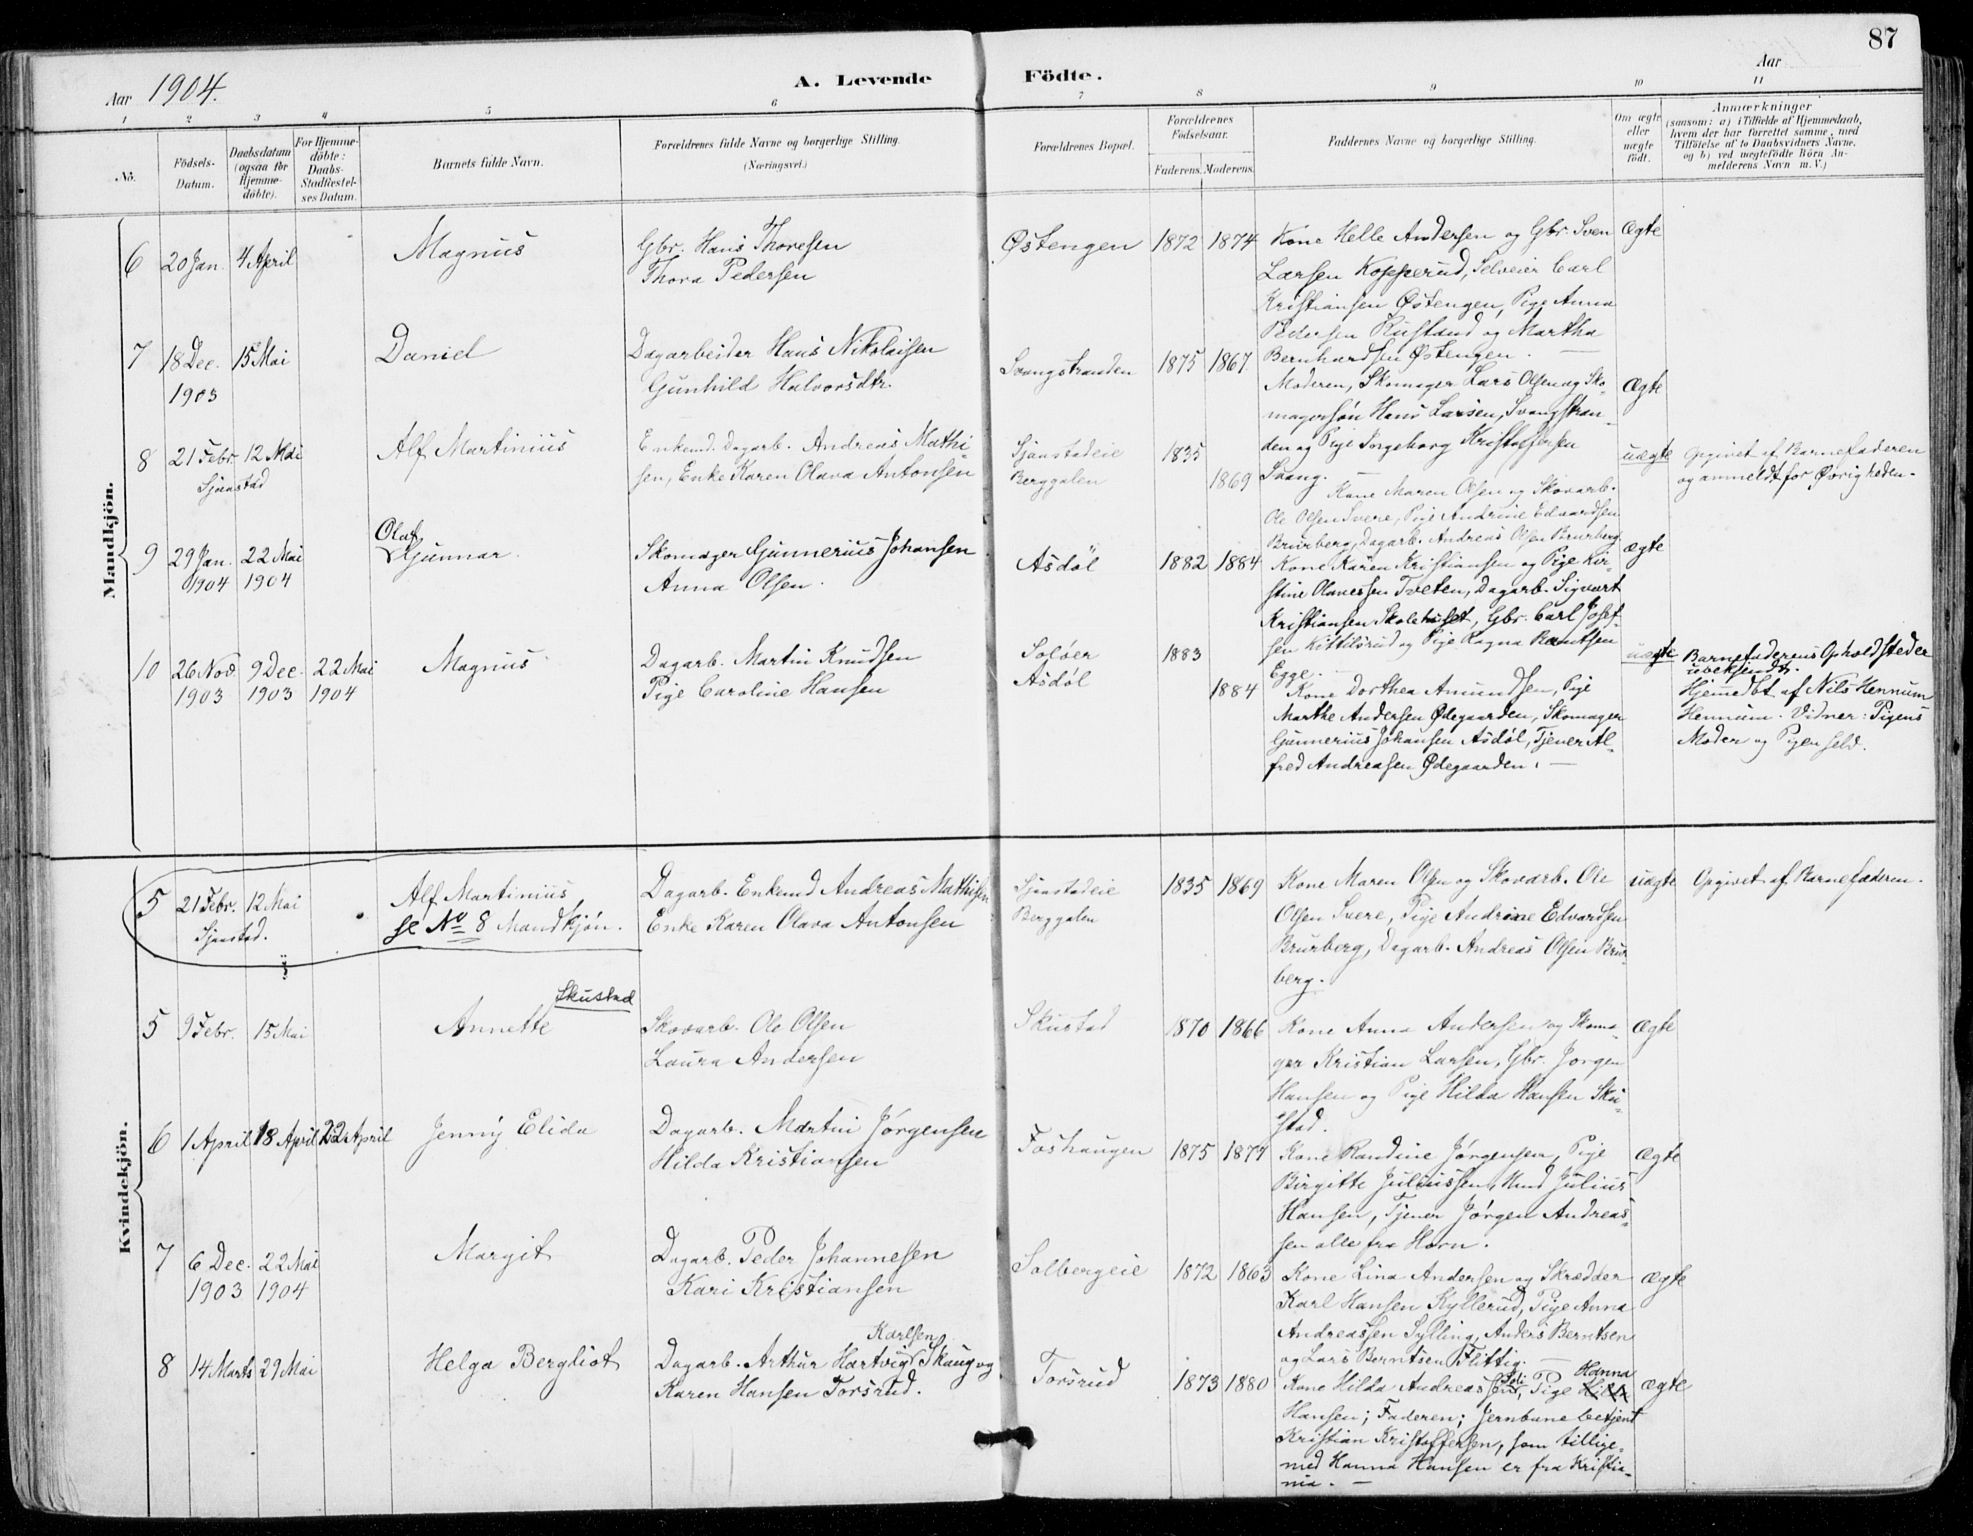 87
Aar 1904.
A. Levende Födte.
Aar
1 2 3 4 5 6 7 8 9 10 11
No.
Födsels-Datum.
Daabsdatum (ogsaa for Hjemme-döbte).
For Hjemme-döbte: Daabs-Stadfæstel-ses Datum.
Barnets fulde Navn.
Forældrenes fulde Navne og borgerlige Stilling. (Næringsvei.)
Forældrenes Bopæl.
Forældrenes Födselsaar.
Faderens. Moderens.
Faddernes Navne og borgerlige Stilling.
Om ægte eller uægte födt.
Anmærkninger
(saasom: a) i Tilfælde af Hjemmedaab,
hvem der har forrettet samme, med
Tilföielse af to Daabsvidners Navne,
og b) ved uægtefödte Börn An-
melderens Navn m. V.)
Mandkjön.
6 20 Jan. 4 April Magnus
Gbr. Hans Thoresen
Thora Pedersen
Østengen 1872 1874
Kone Helle Andersen og Gbr. Sven
Larsen Kopperud, Selveier Carl
Kristiansen Østengen, Pige Anna
Pedersen Rustand og Martha
Bernhardsen Østengen. —
Ægte
7 18 Dec. 1903 15 Mai Daniel
Dagarbeider Hans Nikolaisen
Gunhild Halvorsdtr.
Svangstranden 1875 1867
Moderen, Skomager Lars Olsen og Sko-
magersön Hans Larsen, Svangstran-
den og Pige Ingeborg Kristoffersen
Svang. —
Ægte
8 21 Febr. 12 Mai
Sjaastad
Alf Martinius
Enkemd. Dagarb. Andreas Mathi
sen, Enke Karen Olava Antonsen
Sjaastadeie
Berggalen
1835
1869
Kone Maren Olsen og Skovarb.
Ole Olsen Svere, Pige Andrine Edvardsen
Brurberg, Dagarb. Andreas Olsen Brurberg
uægte
Opgivet af Barnefaderen
og anmeldt for Øvrigheden.
9 29 Jan. 1904 22 Mai 1904
Olaf
Gunnar.
Skomager Gunnerius Johansen
Anna Olsen.
Asdöl 1882 1884
Kone Karen Kristiansen og Pige Kir-
stine Olavessen Tveten, Dagarb. Sigvart
Kristiansen Skolehuset, Gbr. Carl Josef-
sen Kittilsrud og Pige Ragna Berntsen
Egge. —
ægte
10 26 Nov. 1903 9 Dec. 1903 22 Mai 1904 Magnus
Dagarb. Martin Knudsen
Pige Caroline Hansen
Soløer
Asdöl
1883
1884
Kone Dorthea Amundsen, Pige
Marthe Andersen Ødegaarden, Skomager
Gunnerius Johansen Asdöl, Tjener Al-
fred Andreasen Ødegaarden. —
uægte
Barnefaderens Opholdssteder
ubekjendt.
Hjemedbt af Nils Hennum
Hennum. Vidner: Pigens
Moder og Pigen selv.
Kvindekjön.
5 21 Febr. 12 Mai
Sjaastad.
Alf Martinius
se No 8 Mandkjön.
Dagarb. Enkemd Andreas Mathisen
Enke Karen Olava Antonsen
Sjaastadeie
Berggalen
1835 1869
Kone Maren Olsen og Skovarb. Ole
Olsen Svere, Pige Andrine Edvardsen
Brurberg, Dagarb. Andreas Olsen Brur-
berg.
uægte
Opgivet af Barnefaderen.
5 9 Febr. 15 Mai
Skustad
Annette
Skovarb. Ole Olsen
Laura Andersen
Skustad 1870 1866
Kone Anna Andersen og Skoma-
ger Kristian Larsen, Gbr. Jorgen
Hansen og Pige Hilda Hansen Sku-
stad.
Ægte
6 1 April 18 April 22 April Jenny Elida
Dagarb. Martin Jörgensen
Hilda Kristiansen
Foshaugen 1875 1877
Kone Randine Jörgensen, Pige
Birgitte Juliussen, Julius
Hansen, Tjener Jörgen Andreas-
sen alle fra Horn.
Ægte
7 6 Dec. 1903 22 Mai 1904 Margit
Dagarb. Peder Johannesen
Kari Kristiansen
Solbergeie 1872 1863
Kone Lina Andersen og Skrædder
Karl Hansen Kyllerud, Pige Anna
Andreassen Sylling, Anders Berntsen
og Lars Berntsen Flittig. —
Ægte
8 14 Marts 29 Mai Helga Bergliot
Karlsen
Dagarb. Arthur Hartvig Skaug og
Karen Hansen Torsrud.
Torsrud 1873 1880
Hanna
Kone Hilda Andreassen, Pige
Hansen; Faderen; Jernbanebetjent
Kristian Kristoffersen, som tillige-
med Hanna Hansen er fra Kristia-
nia. —
Ægte